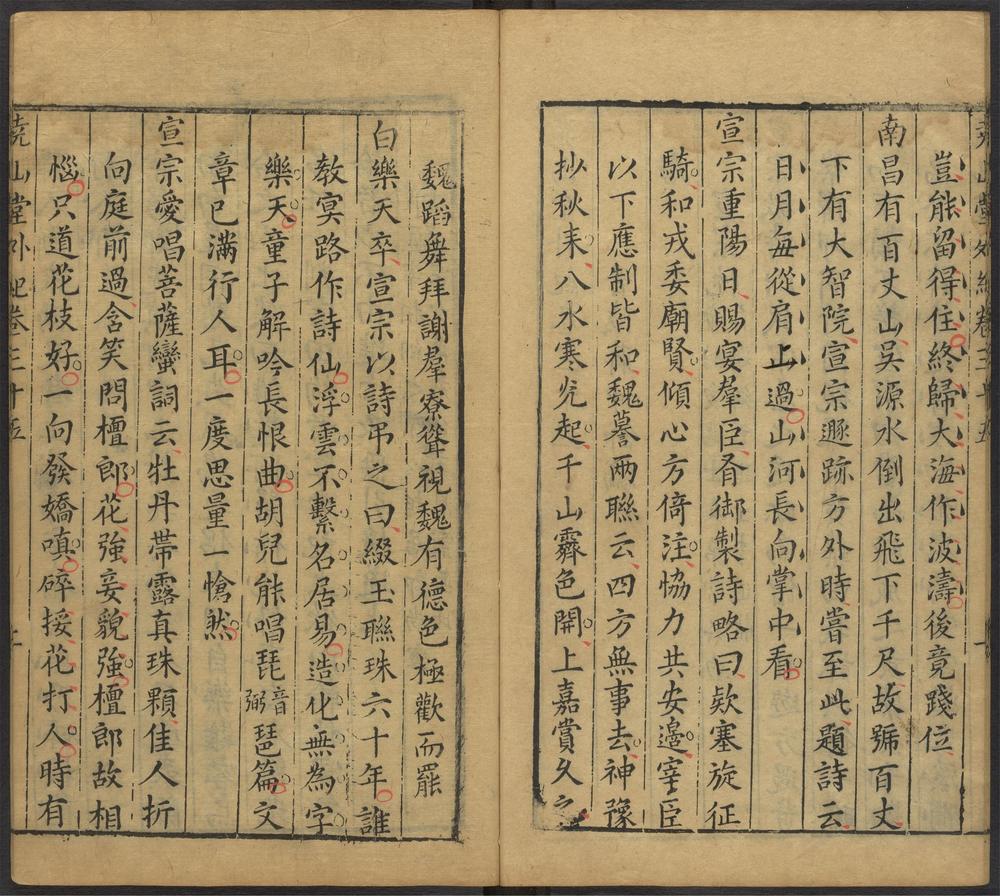 堯山堂外紀卷三十五
豈能留得住終歸大海作波濤後竟踐位
南昌有百丈山吳源水倒出飛下千尺故號百丈
下有大智院宣宗遯跡方外時嘗至此題詩云
日月每從肩上過山河長向掌中看
宣宗重陽日賜宴羣臣有御製詩略曰欵塞旋征
騎和戎委廟賢傾心方倚注恊力共安邉宰臣
以下應制皆和魏謩兩聯云四方無事去神豫
抄秋来八水寒光起千山霽色開上嘉賞久之
魏蹈舞拜謝羣寮聳視魏有德色極歡而罷
白樂天卒宣宗以詩弔之曰綴玉聯珠六十年誰
教㝠路作詩仙浮雲不繫名居易造化無為字
樂天童子解吟長恨曲胡兒能唱琵音弼琶篇文
章已滿行人耳一度思量一愴然
宣宗愛唱菩薩蠻詞云牡丹帶露真珠顆佳人折
向庭前過含笑問檀郎花強妾貌強檀郎故相
惱只道花枝好一向發嬌嗔碎挼花打人時有
堯山堂外紀卷三十五